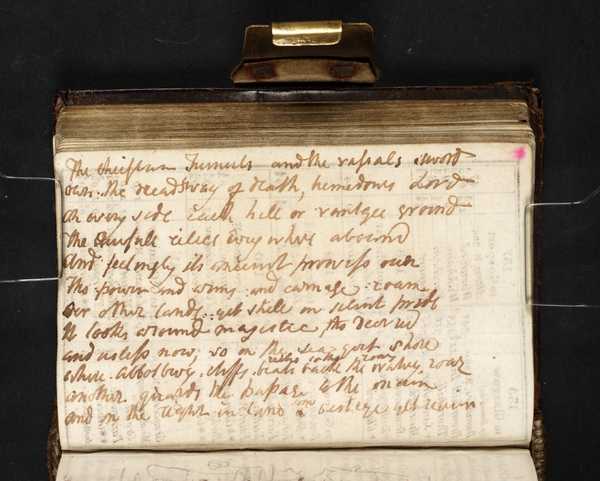 The chieftan Tumuls and the vassals sword
own the dreadsway of death, hemedows Lord
on every side each hill or vantgee ground
the awfull relics every where abound
And feelingly its ancient prowess own
Tho power and arms and carnage roam
Oer other lands yet still on silent pride
It looks around magestic tho decrid
and useless now, so on the sea-gert shore
where Abbotbury cliffs reecho to the roar
beats back the watery roar
another guards the passage to the main
and on the right in land some vestege yet remain